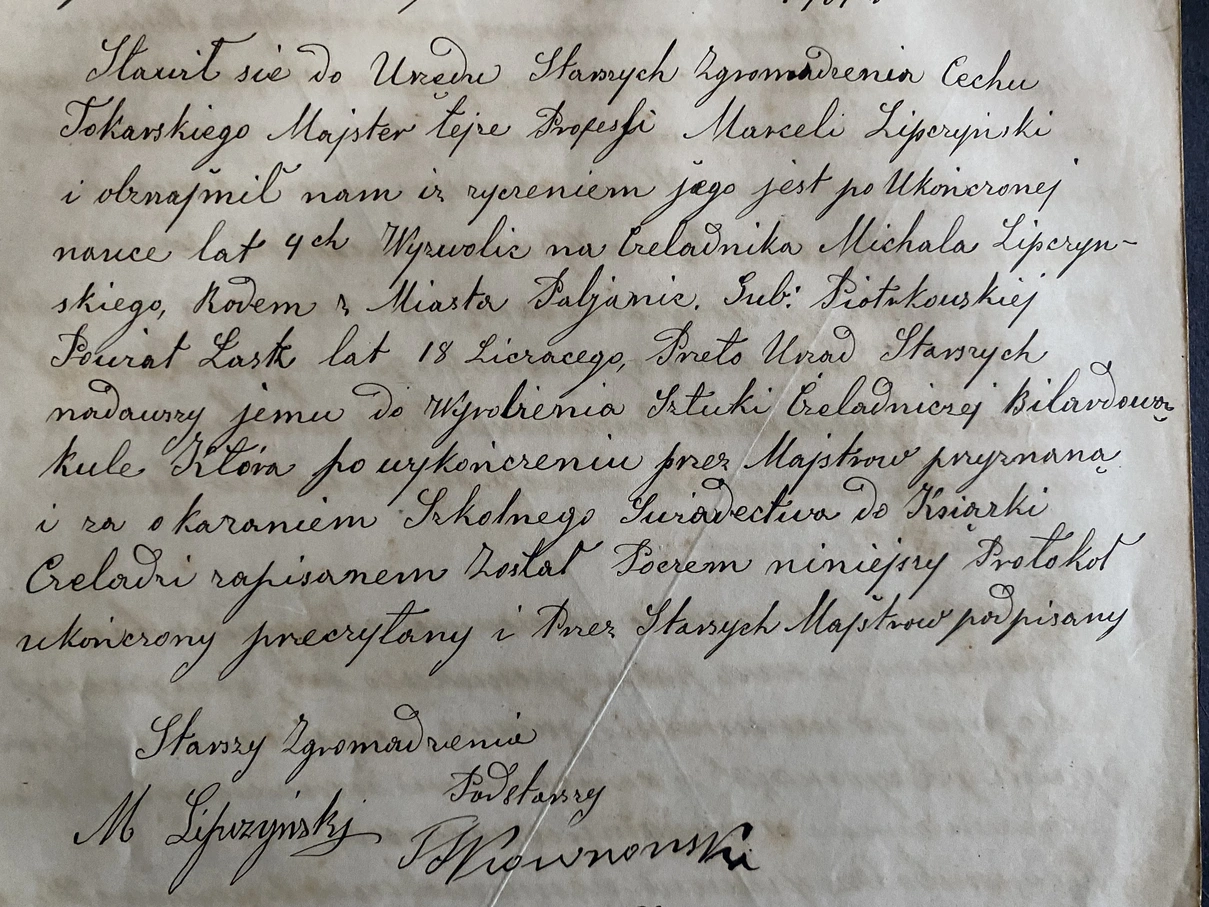 Stawił się do Urzędu Starszych Zgromadzenia Cechu
Tokarskiego Majster tejże Professi Marceli Lipczyński
i obznajmił nam iż życzeniem jego jest po Ukończonej
nauce lat 4ch Wyzwolic na Czeladnika Michała Lipczyn-
skiego, Rodem z Miasta Pabjanic. Gub: Piotrkowskiej
Powiat Łask lat 18 Liczącego, Przeto Urząd Starszych
nadawszy jemu do Wyrobienia Sztuki Czeladniczej Bilardową
kule Która po wykończeniu przez Majstrow przyznaną
i za okazaniem Szkolnego Swiadectwa do Książki
Czeladzi zapisanem Został Poczem niniejszy Protokoł
ukończony przeczytany i Przez Starszych Majstrow podpisany
Starszy Zgromadzenia
Podstarszy
M Lipczyński